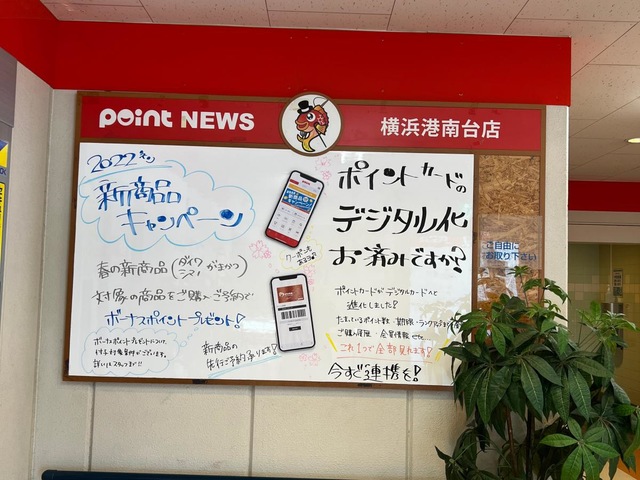 point NEWS
横浜港南台店
2022年
新商品
キャンペーン
春の新商品 (ダイワ シマノ がまかつ)
対象の商品をご購入ご予約で
ボーナスポイントプレゼント!
ボーナスポイントプレゼントについて
詳しくはスタッフまで!!
新商品の
先行ご予約承ります!
クーポンも
ポイントカードの
デジタル化
お済みですか?
ポイントカードがデジタルカードへと
進化しました!
たまっているポイント数・期限・ランク
ご購入履歴・会員情報など…
これ1つで全部見れます!
今すぐ連携を!
ご自由に
お取り下さい